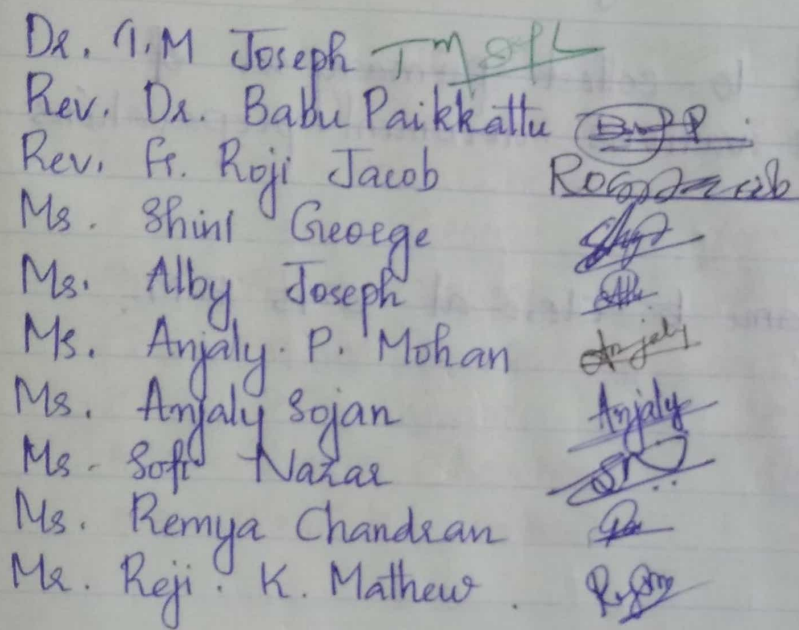 Dr. T.M Joseph
Rev. Dr. Babu Paikkattu
Rev. Fr. Roji Jacob
Ms. Shini George
Ms. Alby Joseph
Ms. Anjaly. P. Mohan Anjaly
Ms. Anjaly Sojan Anjaly
Ms. Sofi Nazar
Ms. Remya Chandran
Mr. Reji. K. Mathew